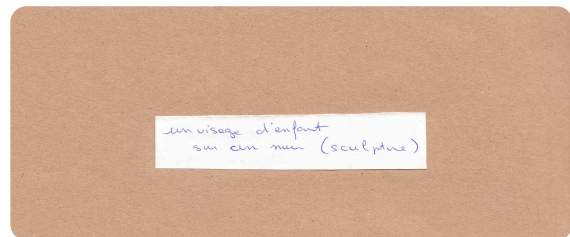 un visage d'enfant
sur un mur (sculpture)